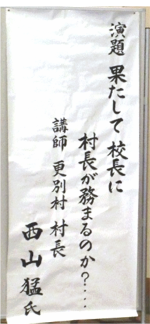 演題 果たして校長に
村長が務まるのか?...
講師 更別村 村長
西山猛氏